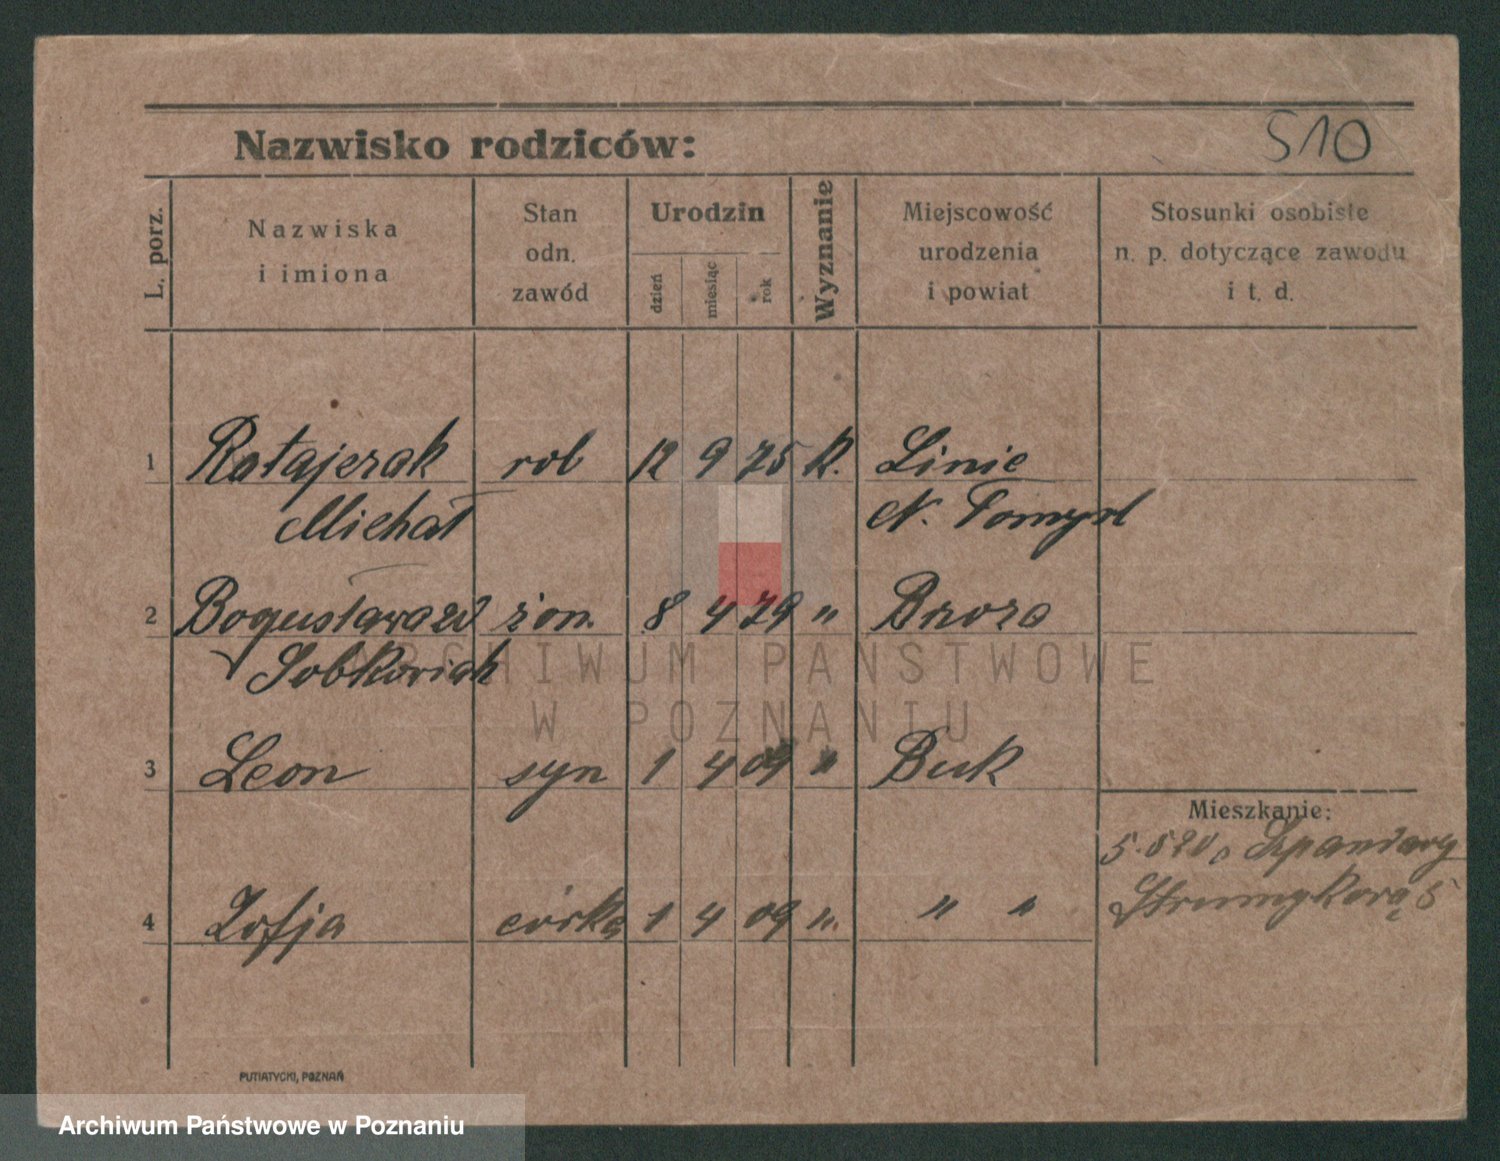 Nazwisko rodziców:
510
L. porz.
Nazwiska
i imiona
Stan
odn.
zawód
Urodzin
dzień
miesiąc
rok
Wyznanie
Miejscowość
urodzenia
i powiat
Stosunki osobiste
n. p. dotyczące zawodu
i t. d.
1 Ratajczak rob 12 9 75 K. Linie
Michał N. Tomysl
2 Bogusława zd żon. 8 4 79 "
Sobkowiak
3 Leon syn 1 4 09 " Buk
Mieszkanie:
5.
4 Zofja córka 1 4 09 " " "
5
PUTIATYCKI, POZNAŃ
ARCHIWUM PAŃSTWOWE
W POZNANIU
Archiwum Państwowe w Poznaniu